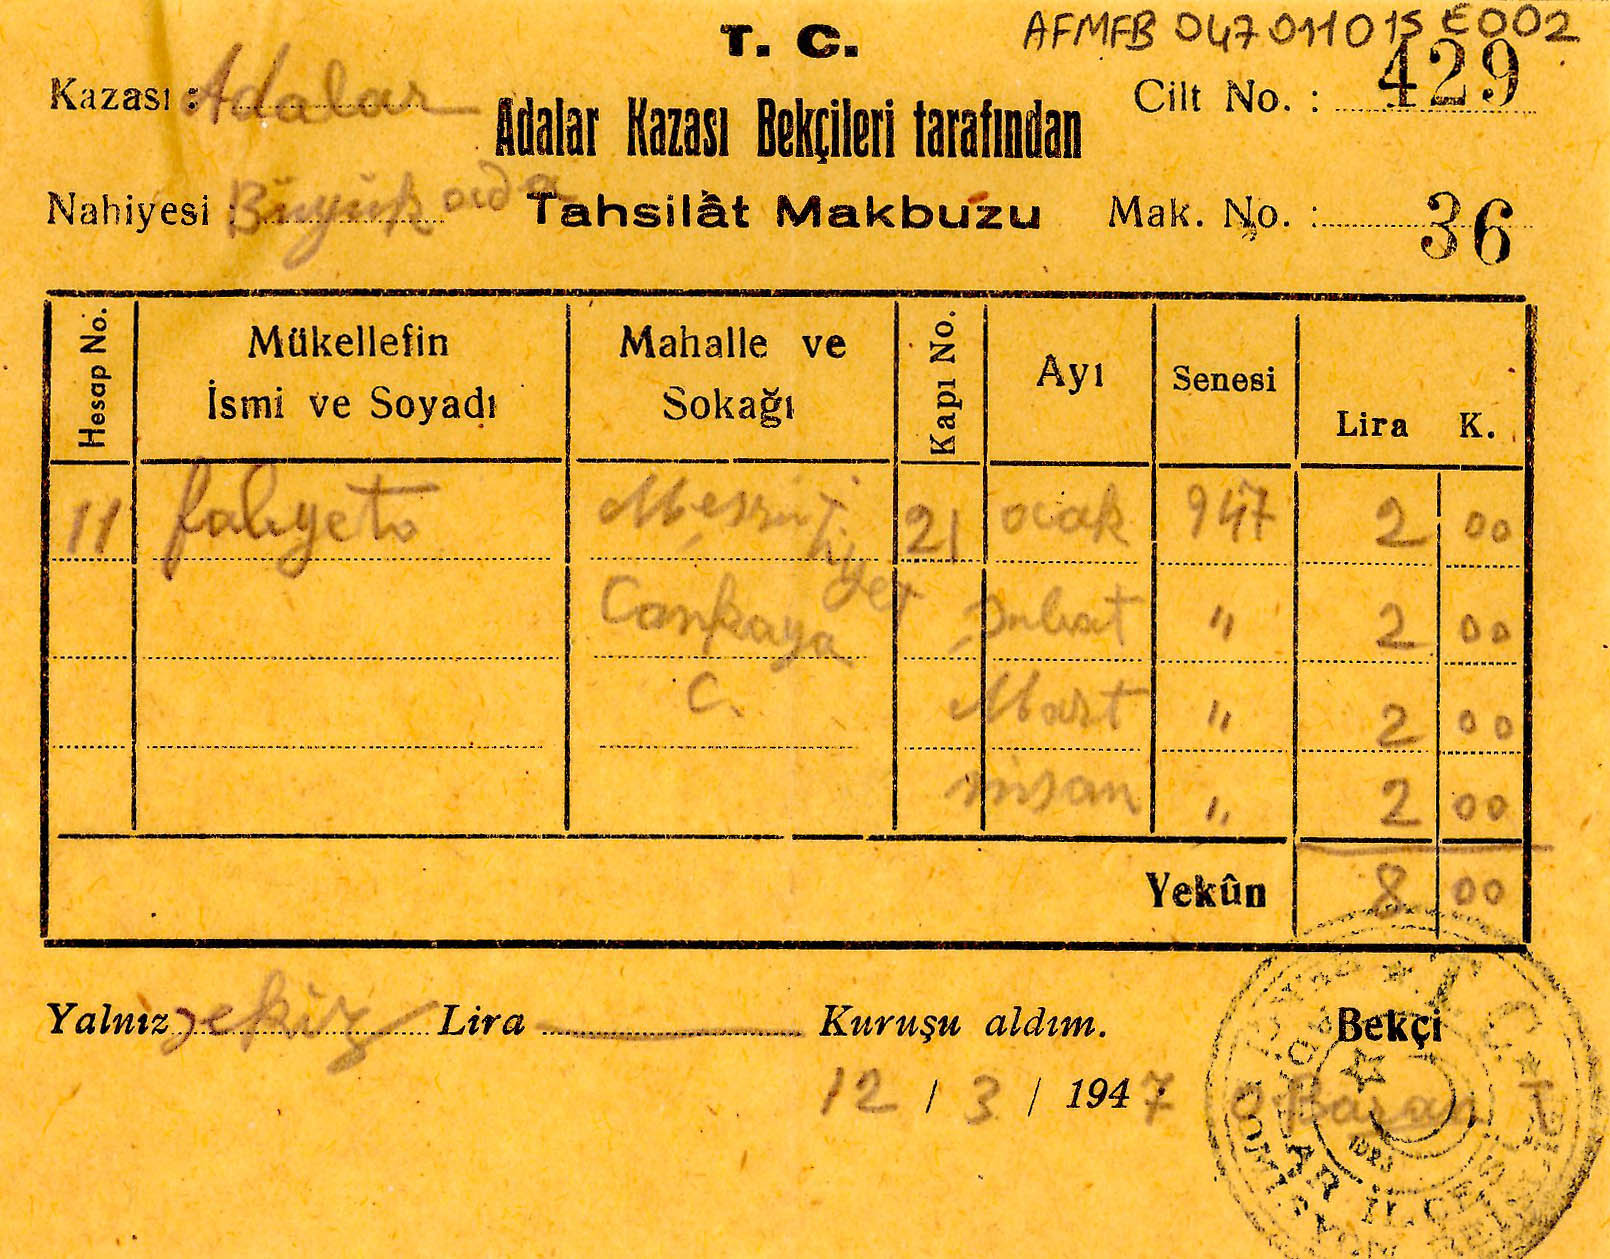 AFMFB 047011015 E002
T. C.
Kazası : Adalar
Cilt No. : 429
Adalar Kazası Bekçileri tarafından
Nahiyesi : Büyük ada
Tahsilât Makbuzu
Mak. No. : 36
Hesap No. Mükellefin İsmi ve Soyadı Mahalle ve Sokağı Kapı No. Ayı Senesi Lira K.
11 falyeto Meşrutiyet 21 ocak 947 2 00
Cankaya şubat " 2 00
C. Mart " 2 00
nisan " 2 00
Yekûn 8 00
Yalnız sekiz Lira — Kuruşu aldım.
Bekçi
12 / 3 / 1947
T. C.
1923